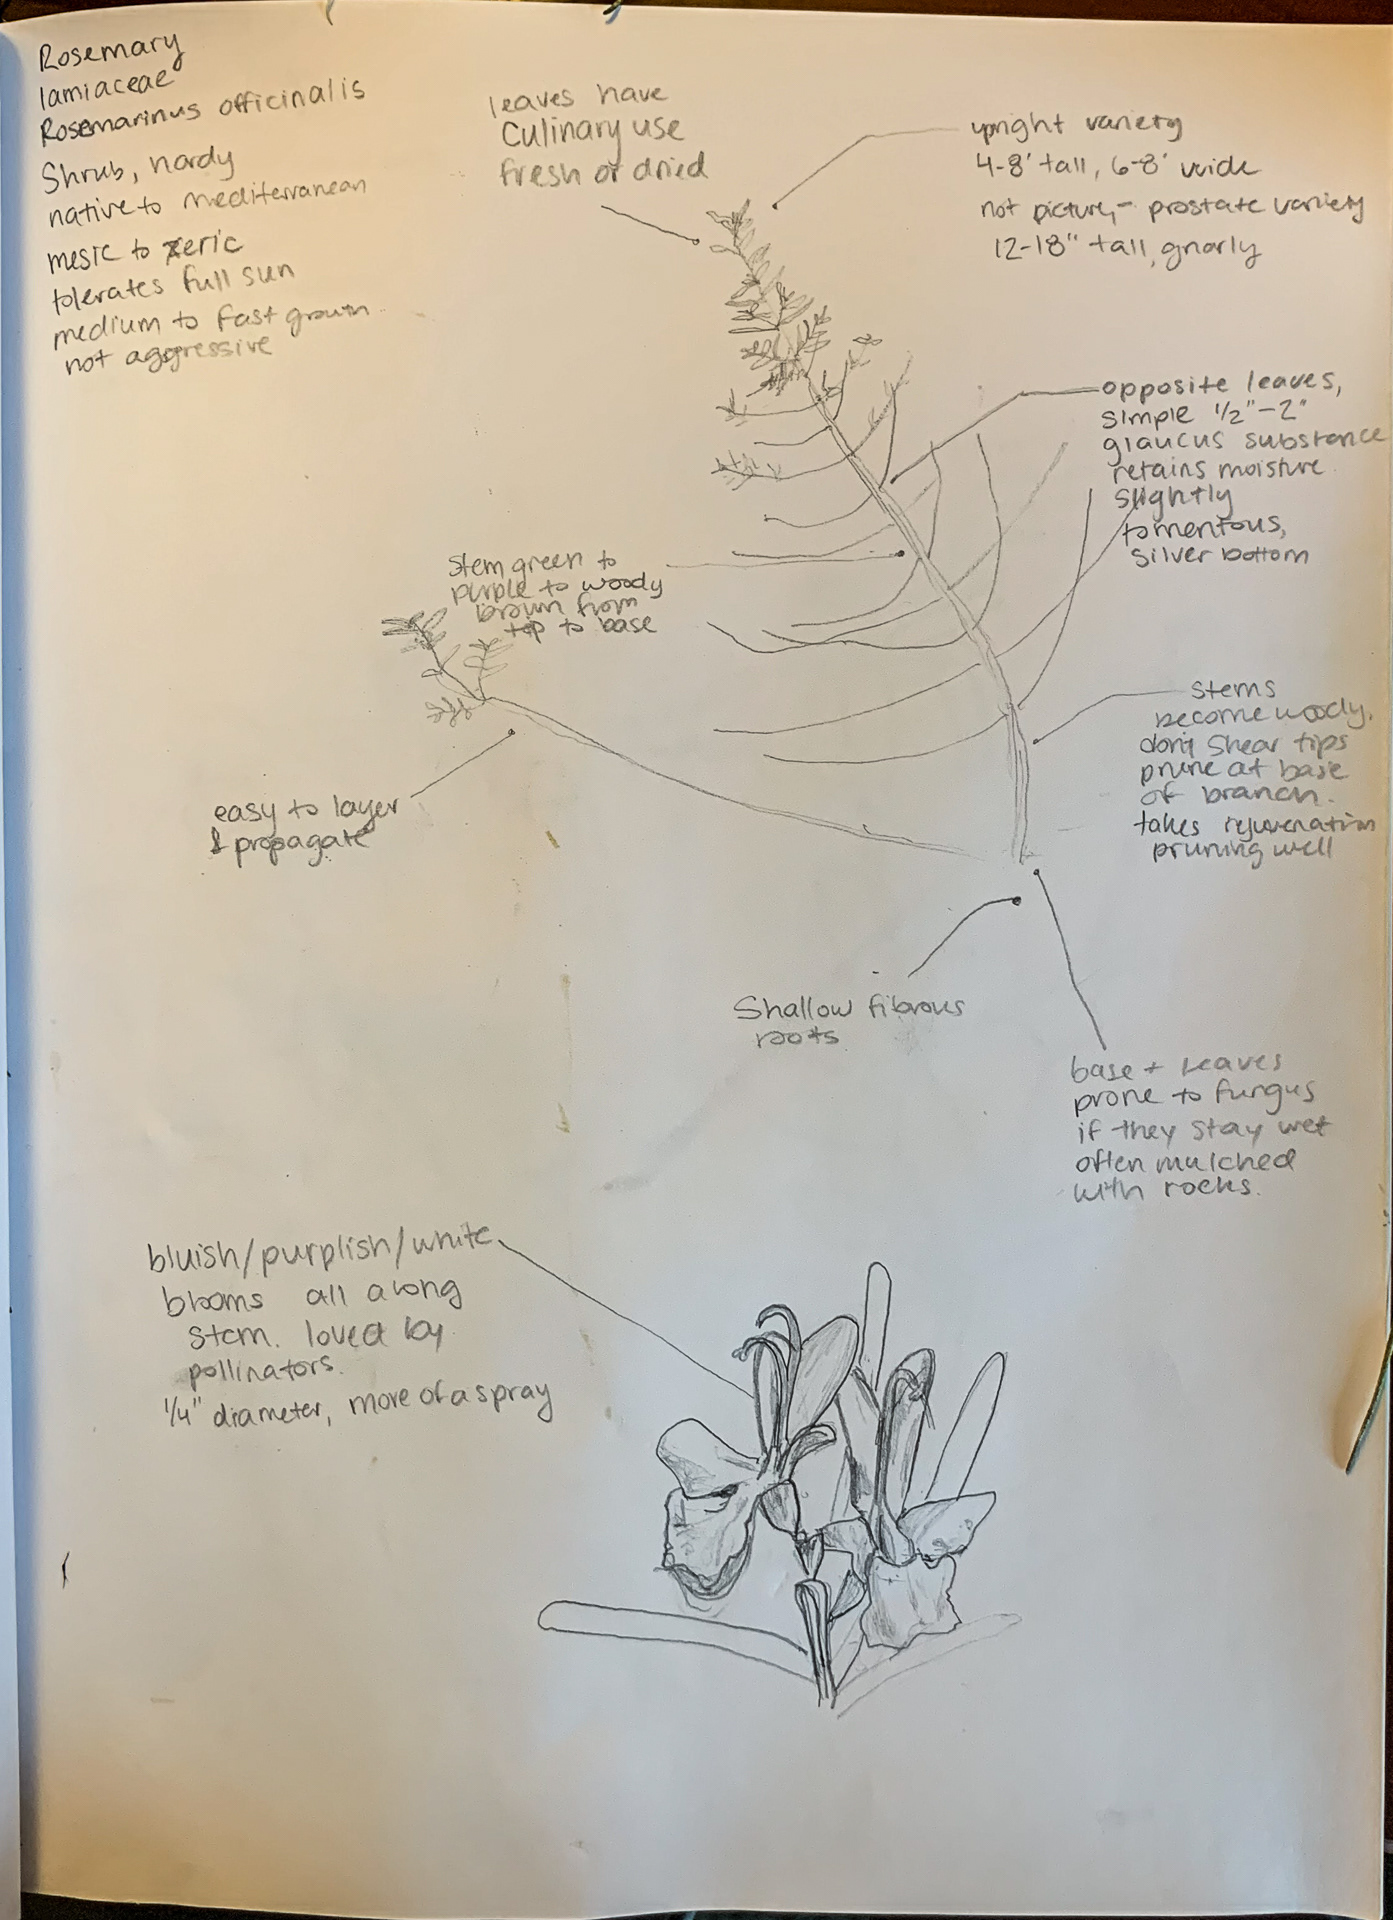 Rosemary
lamiaceae
Rosemarinus officinalis
Shrub, hardy
native to mediterranean
mesic to xeric
tolerates full sun
medium to fast growth
not aggressive
leaves have
culinary use
fresh or dried
upright variety
4-8' tall, 6-8' wide
not picture, - prostate variety
12-18" tall, gnarly
opposite leaves,
simple 1/2"-2"
glaucus substance
retains moisture
slightly
tomentous,
silver bottom
stem green to
purple to woody
brown from
top to base
stems
become woody,
don't shear tips
prune at base
of branch.
takes rejuvenation
pruning well
easy to layer
& propagate
Shallow fibrous
roots
base + leaves
prone to fungus
if they stay wet
often mulched
with rocks.
bluish/purplish/white
blooms all along
stem. loved by
pollinators.
1/4" diameter, more of a spray